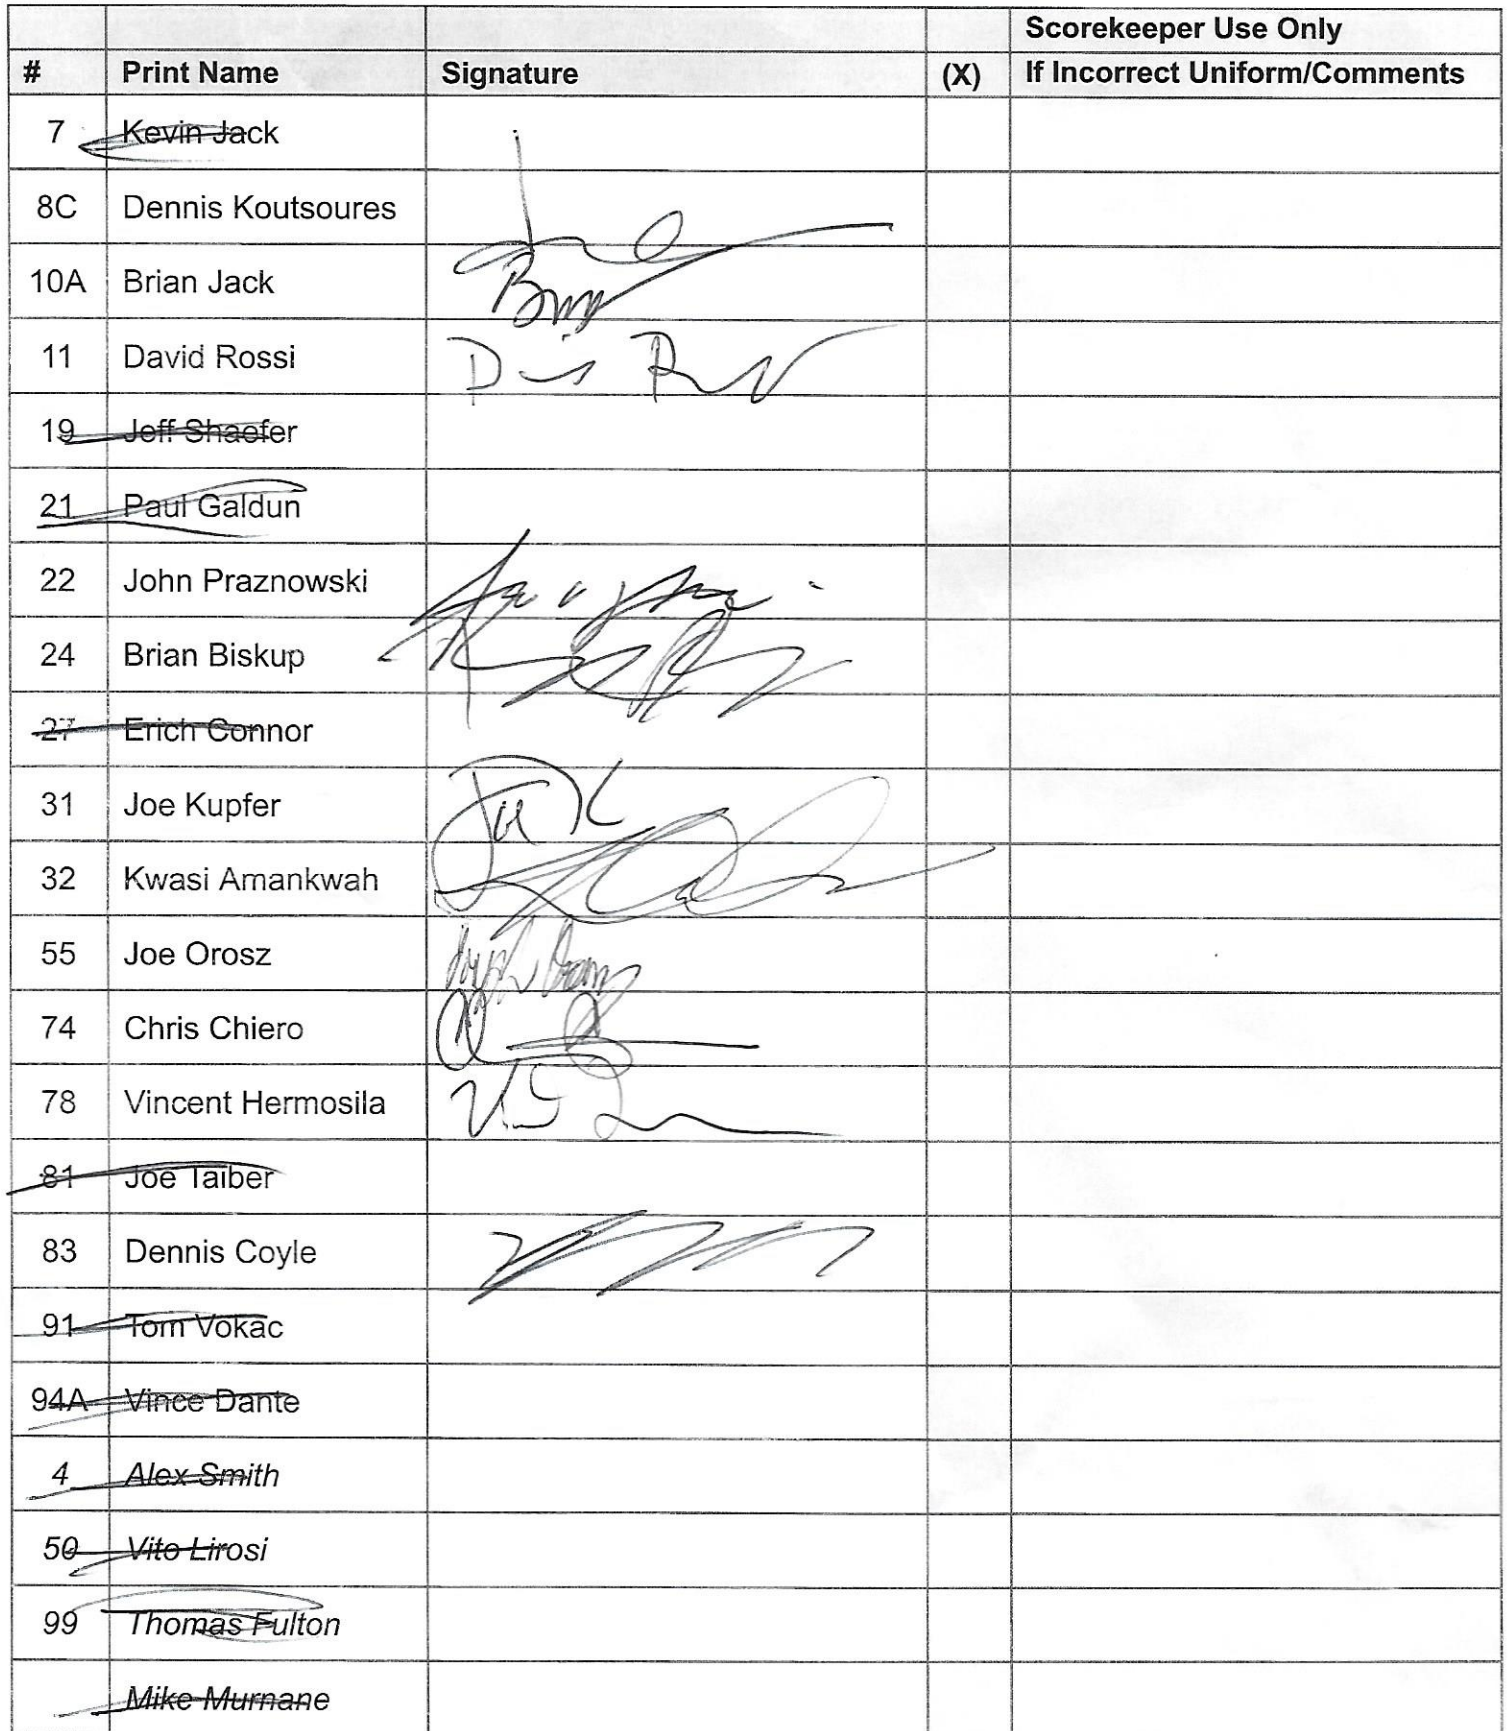 Scorekeeper Use Only
# Print Name Signature (X) If Incorrect Uniform/Comments
7 Kevin Jack
8C Dennis Koutsoures
10A Brian Jack
11 David Rossi
19 Jeff Shaefer
21 Paul Galdun
22 John Praznowski
24 Brian Biskup
27 Erich Connor
31 Joe Kupfer
32 Kwasi Amankwah
55 Joe Orosz
74 Chris Chiero
78 Vincent Hermosila
81 Joe Taiber
83 Dennis Coyle
91 Tom Vokac
94A Vince Dante
4 Alex Smith
50 Vito Lirosi
99 Thomas Fulton
Mike Murnane